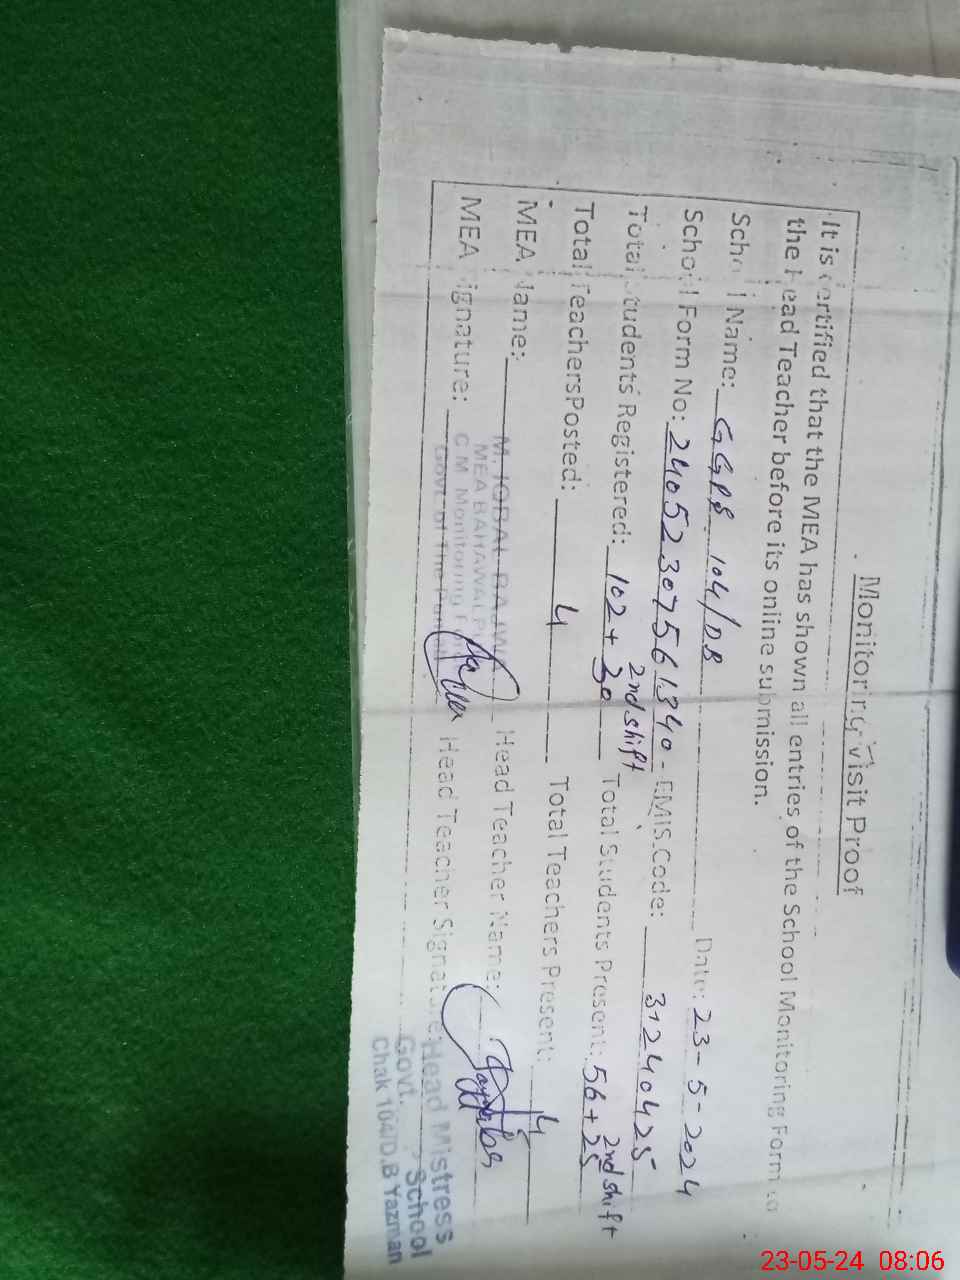 Monitoring Visit Proof
It is certified that the MEA has shown all entries of the School Monitoring Form to
the Head Teacher before its online submission.
School Name: GGPS 104/DB Date: 23-5-2024
School Form No: 24052307561340 - EMIS Code: 31240425
2nd shift 2nd shift
Total Students Registered: 102 + 30 Total Students Present: 56 + 25
Total Teachers Posted: 4 Total Teachers Present: 4
MEA Name: M. IQBAL BAJWA Head Teacher Name:
MEA BAHAWALPUR
MEA Signature: C M Monitoring Head Teacher Signature: Head Mistress
Govt of The Punjab Govt. School
Chak 104/D.B Yazman
23-05-24 08:06